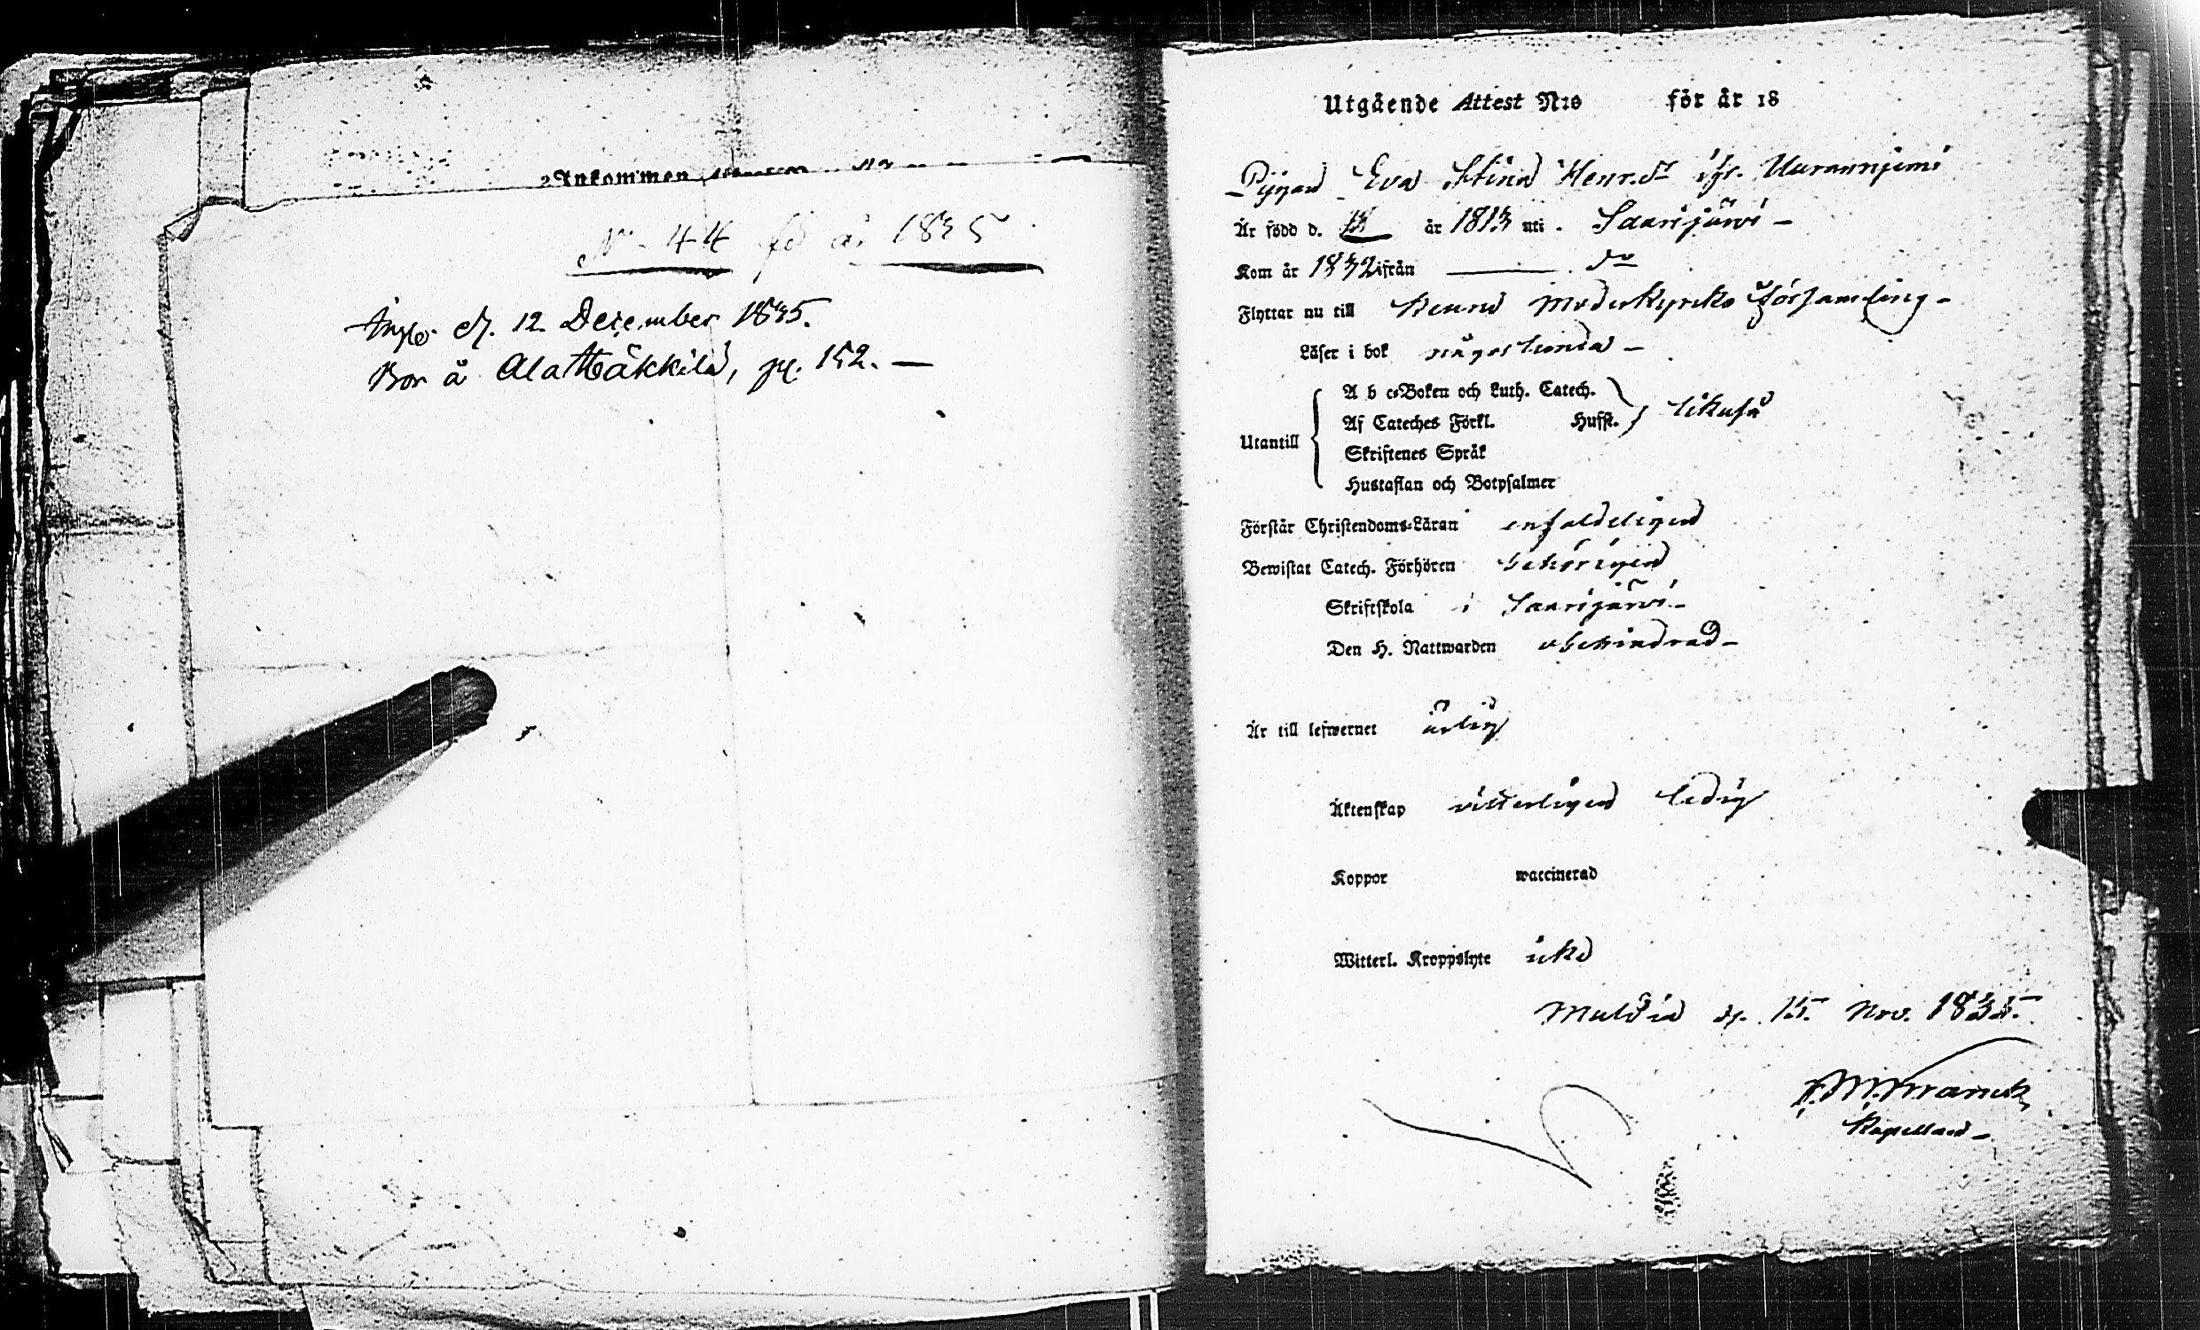 Ankommen
No 44 för år 1835
Ingr. d. 12 December 1835.
Bor å Ala Häkkilä, pg. 152. —
Utgående Attest N:o för år 18
Pigan Eva Stina Henr.dr ifr.
Är född d. år 1813 uti Saarijärvi —
Kom år 1832 ifrån — do
Flyttar nu till Keuru Moderkyrko församling —
Läser i bok någorlunda —
Utantill
A b c-Boken och Luth. Catech.
Af Cateches Förkl. Husst. } likaså
Skriftenes Språk
Hustaflan och Botpsalmer
Förstår Christendoms-Läran enfaldeligen
Bewistat Catech. Förhören behörigen
Skriftskola i Saarijärvi —
Den H. Nattwarden obehindrad —
Är till lefwernet ärlig
Äktenskap vitterligen ledig
Koppor waccinerad
Witterl. Kroppslyte icke
Multia d. 15. Nov. 1835.
Kapellan —